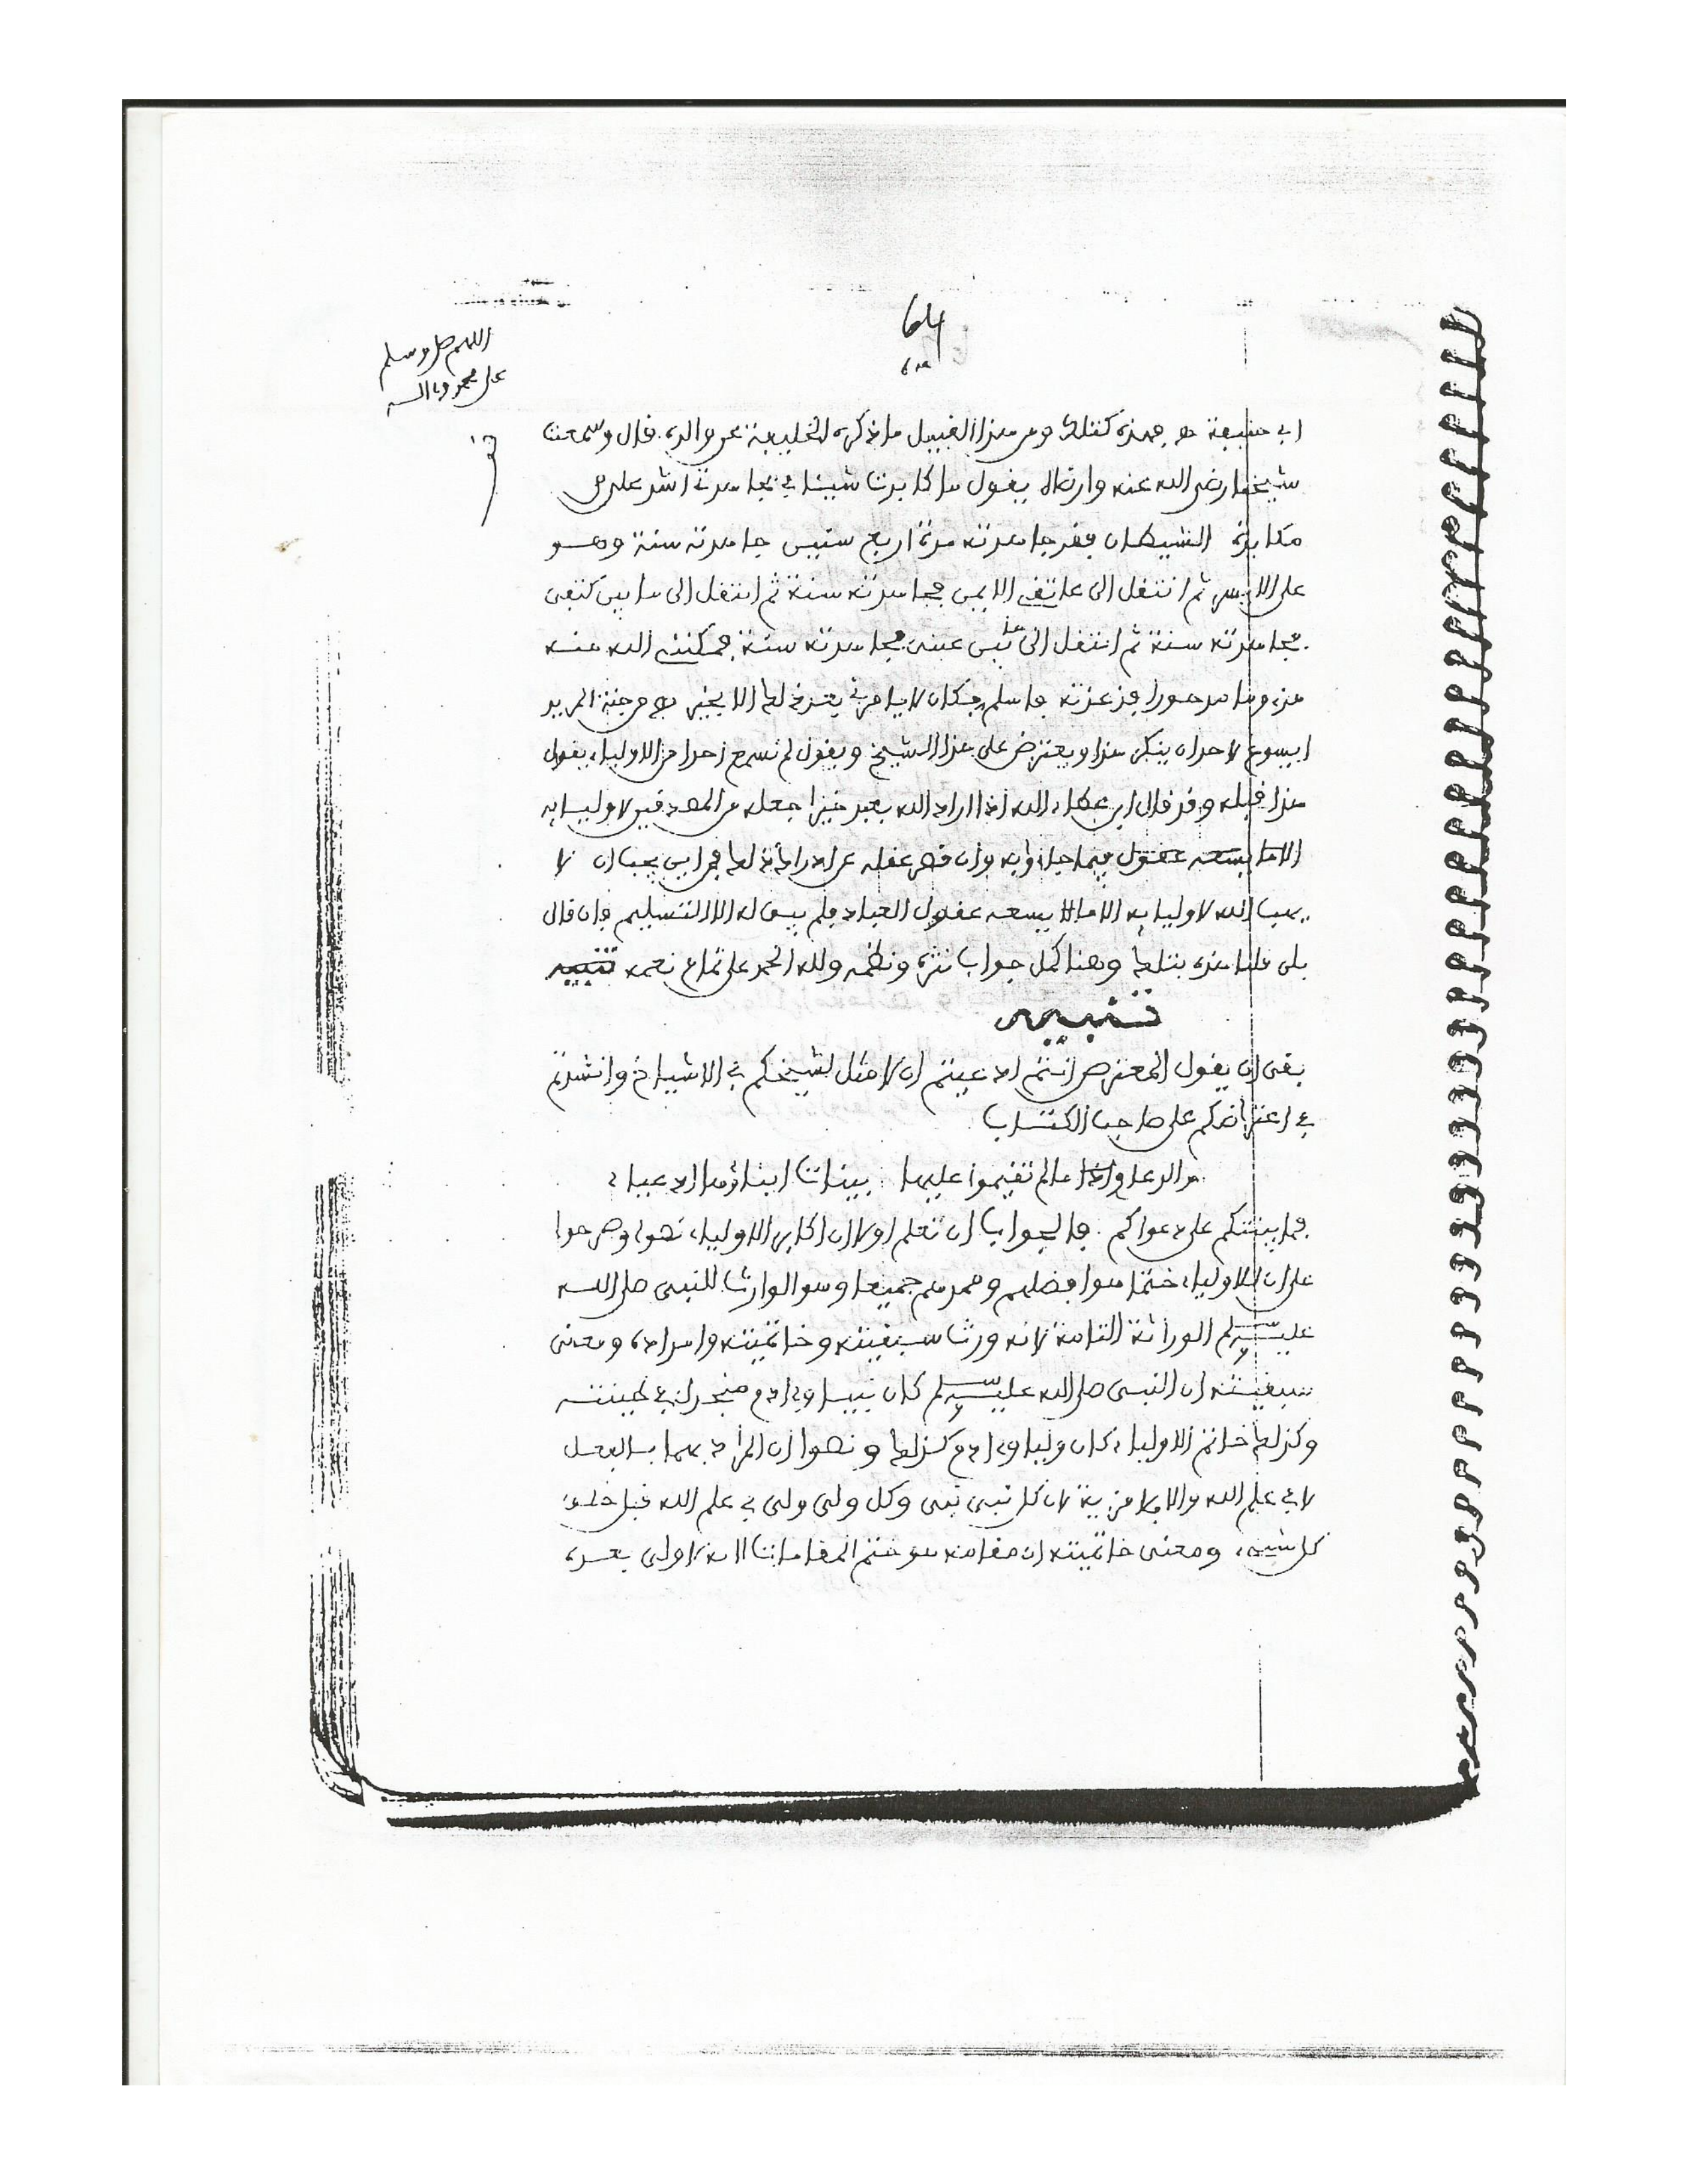 64
٦٤
اللهم صل وسلم
على محمد وءاله
ابي حنيفة هـ فهذه كتلك ومن هذا القبيل ما ذكره الخليفة عن والده قال وسمعت
شيخنا رضي الله عنه وارضاه يقول ما كابدت شيئا في مجاهدتي اشد علي من
مكابدة الشيطان فقد جاهدته مدة اربع سنين جاهدته سنة وهو
على الايسر ثم انتقل الى عاتقي الايمن فجاهدته سنة ثم انتقل الى ما بين كتفي
فجاهدته سنة ثم انتقل الى ما بين عيني فجاهدته سنة فمكنني الله منه
مذءوما مدحورا فذعذته فاسلم فكان لا يامرني بعد ذلك الا بخير هـ من جنة المريد
ايسوغ لاحد ان ينكر هذا ويعترض على هذا الشيخ ويقول لم نسمع احدا من الاولياء يقول
هذا قبله وقد قال ابن عطاء الله اذا اراد الله بعبد خيرا جعله من المصدقين لاوليايه
وان قصر عقله عن ادراك ذلك فمن اين يجب ان لا
يهب الله لاوليايه الا ما يسعه عقول العباد فلم يبق له الا التسليم فان قال
بلى قلنا هذه بتلك وهنا كمل جواب نثره ونظمه ولله الحمد على تمام نعمه تنبيه
تنبيه
بقى ان يقول المعترض انتم ادعيتم ان لا مثل لشيخكم في الاشياخ وانشدتم
في اعتراضكم على صاحب الكتاب
والدعاوى ما لم تقيموا عليها بينات ابناؤها ادعياء
فما بينتكم على دعواكم فالجواب ان تعلم اولا ان اكابر الاولياء نصوا وصرحوا
على ان للاولياء ختما هو افضلهم وممدهم جميعا وهو الوارث للنبي صلى الله
عليه وسلم الوراثة التامة لانه ورث سبقيته وخاتميته وامداده ومعنى
سبقيته ان النبي صلى الله عليه وسلم كان نبيا وءادم منجدل في طينته
وكذلك خاتم الاولياء كان وليا وءادم كذلك ونصوا ان المراد بهما بالفعل
لا في علم الله والا فلا مزية لان كل نبي نبي وكل ولي ولي في علم الله قبل خلق
كل شيء ومعنى خاتميته ان مقامه هو ختم المقامات الا انه لا ولي بعده